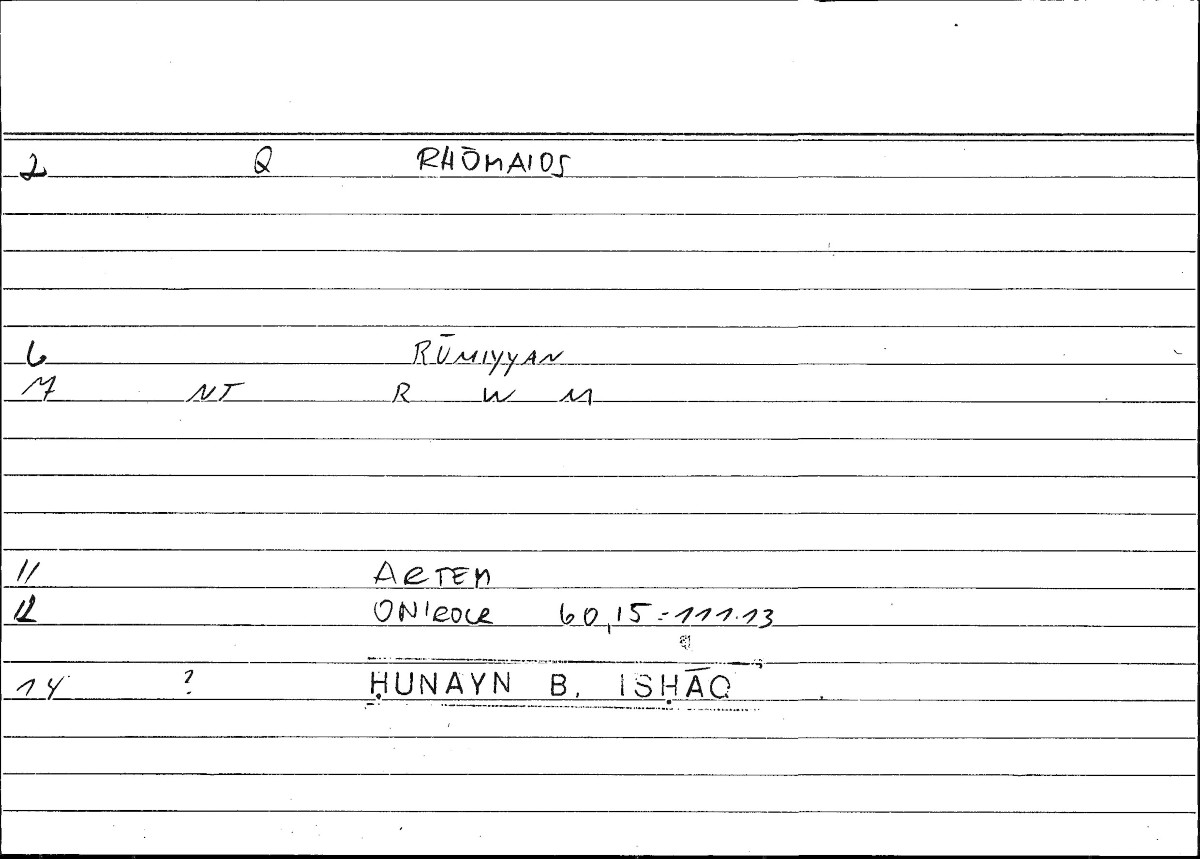 2 Q RHŌMAIOS
6 RŪMIYYAN
7 NT R W M
11 ARTEM
12 ONIROCR 60,15=111.13
14 ? ḤUNAYN B. ISḤĀQ